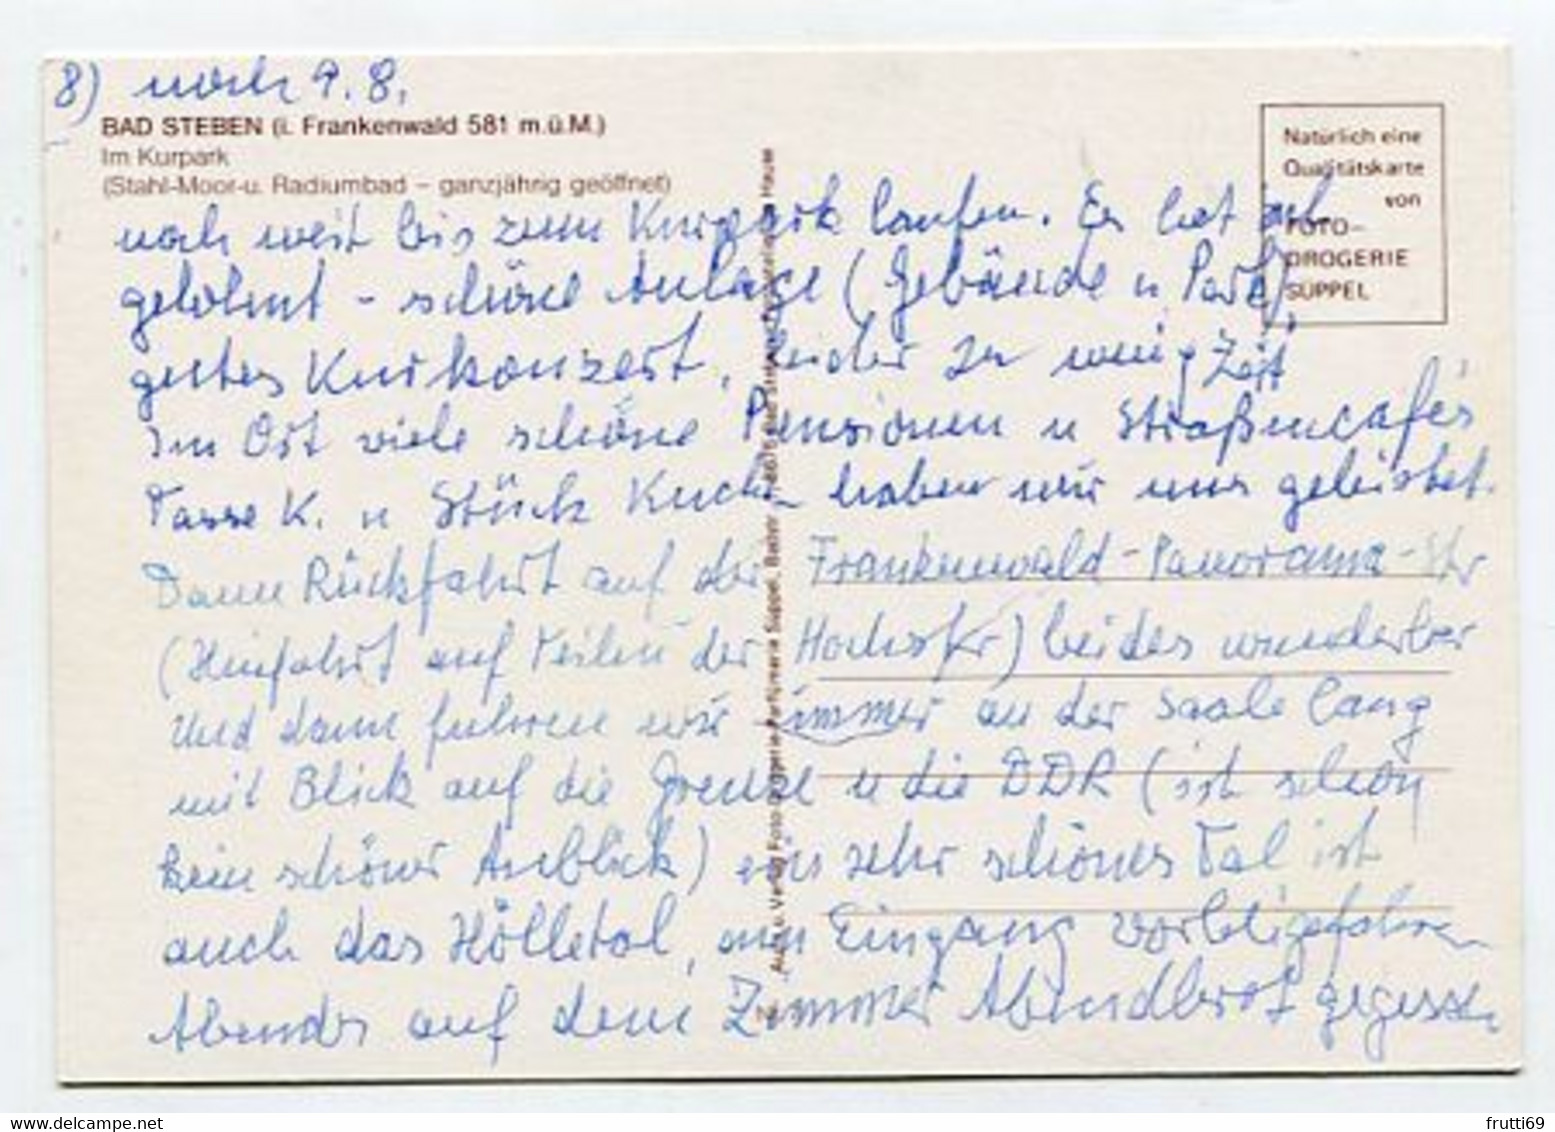 8) noch 9.8.
BAD STEBEN (i. Frankenwald 581 m.ü.M.)
Im Kurpark
(Stahl-Moor-u. Radiumbad – ganzjährig geöffnet)
Natürlich eine
Qualitätskarte
von
FOTO-
DROGERIE
SÜPPEL
noch weit bis zum Kurpark laufen. Es hat sich
gelohnt - schöne Anlage (Gebäude u Park)
gutes Kurkonzert, leider zu wenig Zeit
Im Ort viele schöne Pensionen u Straßencafés
Tasse K. u Stück Kuchen haben wir uns geleistet.
Dann Rückfahrt auf der Frankenwald-Panorama-Str
(Hinfahrt auf Teilen der Hochstr) beides wunderbar
Und dann fuhren wir immer an der Saale lang
mit Blick auf die Grenze u die DDR (ist schon
kein schöner Anblick) ein sehr schönes Tal ist
auch das Höllental, am Eingang vorbeigefahren
Abends auf dem Zimmer Abendbrot gegessen
Aufn. u. Verlag Foto-Drogerie-Parfümerie Süppel, 8675 Bad Steben
frutti69